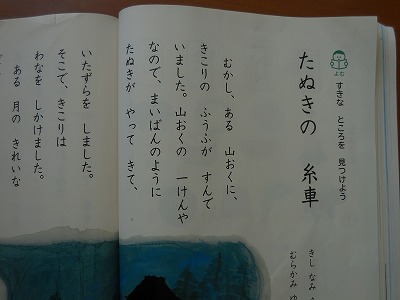 よむ
すきな ところを 見つけよう
たぬきの 糸車
きし なみ
むらかみ ゆ
むかし、ある 山おくに、
きこりの ふうふが すんで
いました。山おくの 一けんや
なので、まいばんのように
たぬきが やって きて、
いたずらを しました。
そこで、きこりは
わなを しかけました。
ある 月の きれいな